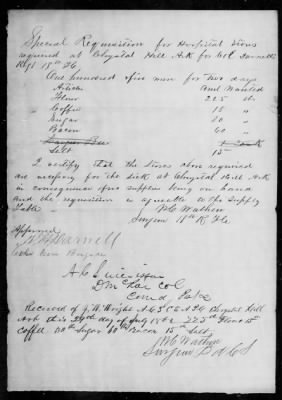 Special Requisition for Hospital Stores
required at Chrystal Hill Ark for Col Darnells
Regt 18th 26
One hundred five men for two days
Article Amt Wanted
Flour 225 lbs
Coffee 15 "
Sugar 20 "
Bacon 60 "
Salt 15
I certify that the stores above required
are necessary for the sick at Chrystal Hill Ark
in consequence of no supplies being on hand
and the requisition is agreeable to the Supply
Table W C Wathen
Surgeon
Approved
Darnell
A C S
Comd Post
Received of J. W. Wright A C S C S A Chrystal Hill
Ark this day of July 1862 225 lb Flour 15
coffee Sugar Bacon 15 lb Salt
W C Wathen
Surgeon